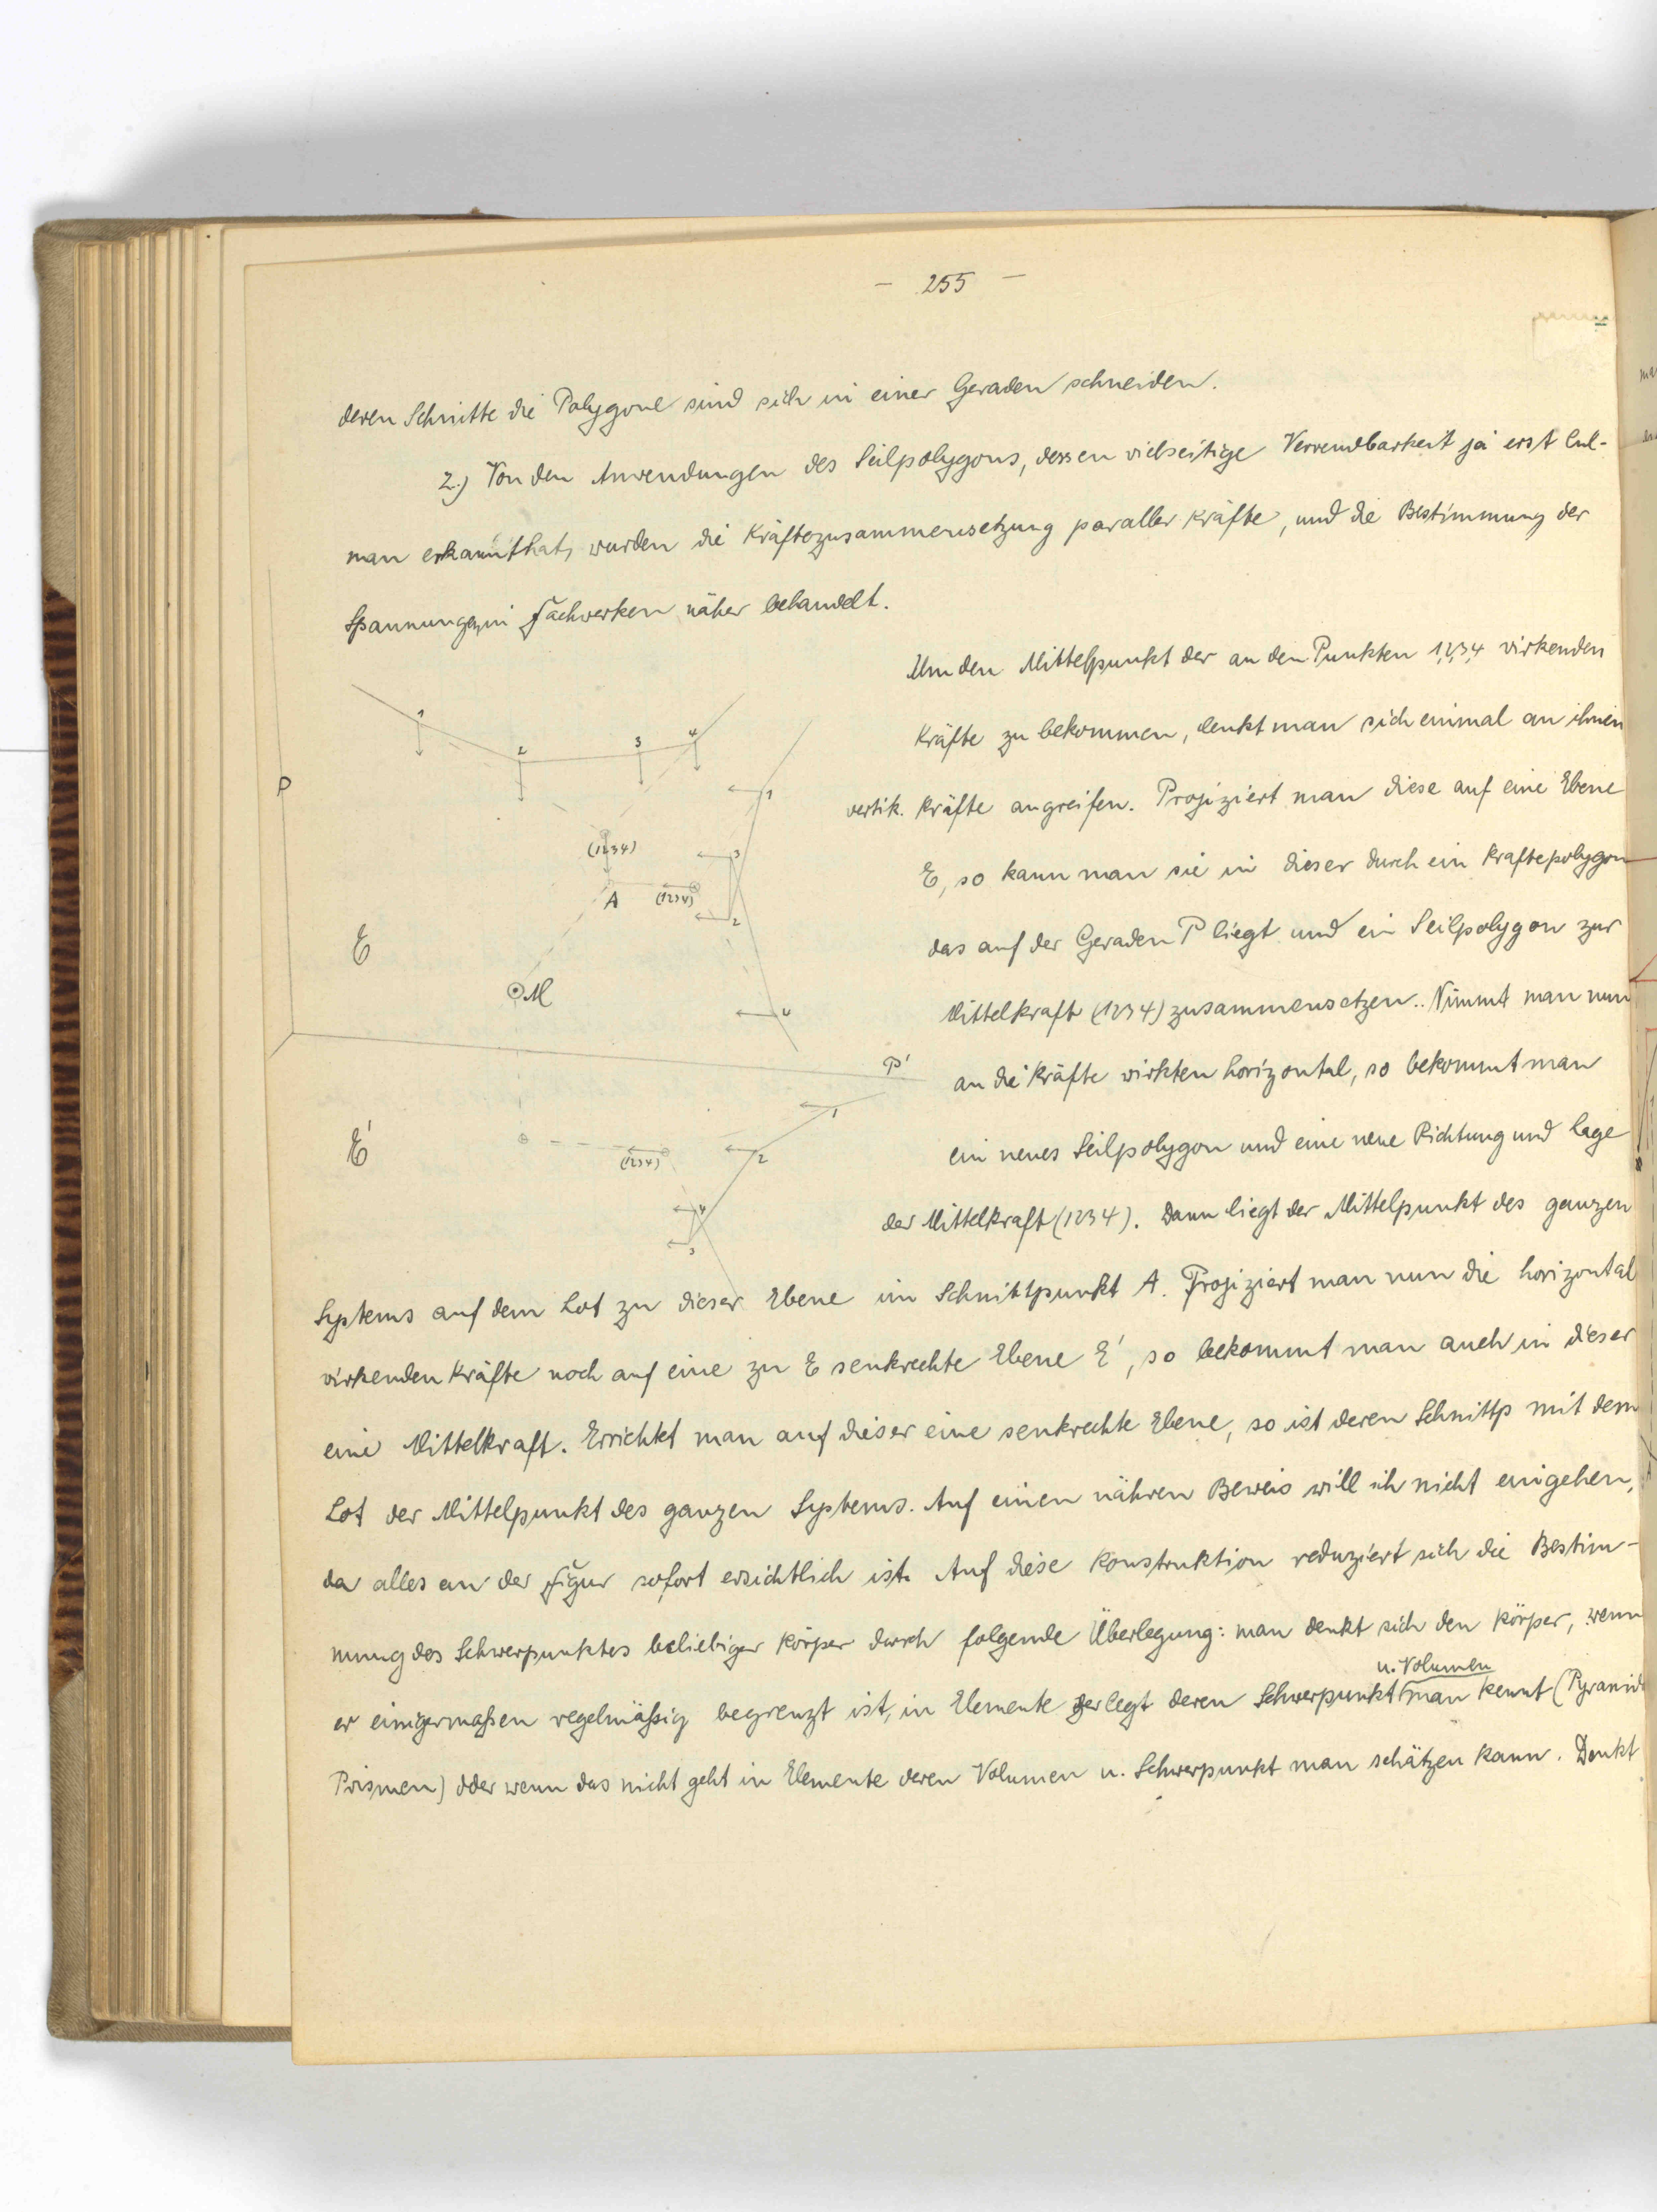 – 255 –
deren Schnitte die Polygone sind sich in einer Geraden schneiden.
2.) Von den Anwendungen des Seilpolygons, dessen vielseitige Verwendbarkeit ja erst Cul-
man erkannt hat, wurden die Kräftezusammensetzung paraller Kräfte, und die Bestimmung der
Spannungen in Fachwerken näher behandelt.
Um den Mittelpunkt der an den Punkten 1,2,3,4 wirkenden
Kräfte zu bekommen, denkt man sich einmal an ihnen
vertik. Kräfte angreifen. Projiziert man diese auf eine Ebene
E, so kann man sie in dieser durch ein Kraftepolygon
das auf der Geraden P liegt und ein Seilpolygon zur
Mittelkraft (1234) zusammensetzen.. Nimmt man nun
an die Kräfte wirkten horizontal, so bekommt man
ein neues Seilpolygon und eine neue Richtung und Lage
der Mittelkraft (1234). Dann liegt der Mittelpunkt des ganzen
Systems auf dem Lot zu dieser Ebene im Schnittpunkt A. Projiziert man nun die horizontal
wirkenden Kräfte noch auf eine zu E senkrechte Ebene E', so bekommt man auch in dieser
eine Mittelkraft. Errichtet man auf dieser eine senkrechte Ebene, so ist deren Schnittp mit dem
Lot der Mittelpunkt des ganzen Systems. Auf einen nähren Beweis will ich nicht eingehen,
da alles an der Figur sofort ersichtlich ist. Auf diese Konstruktion reduziert sich die Bestim-
mung des Schwerpunktes beliebiger Körper durch folgende Überlegung: man denkt sich den Körper, wenn
u. Volumen
er einigermaßen regelmäßig begrenzt ist, in Elemente zerlegt deren Schwerpunkt man kennt (Pyramide
Prismen) oder wenn das nicht geht in Elemente deren Volumen u. Schwerpunkt man schätzen kann. Denkt
1
2
3
4
P
(1234)
A
(1234)
1
3
2
4
E
M
P'
E'
(1234)
1
2
4
3